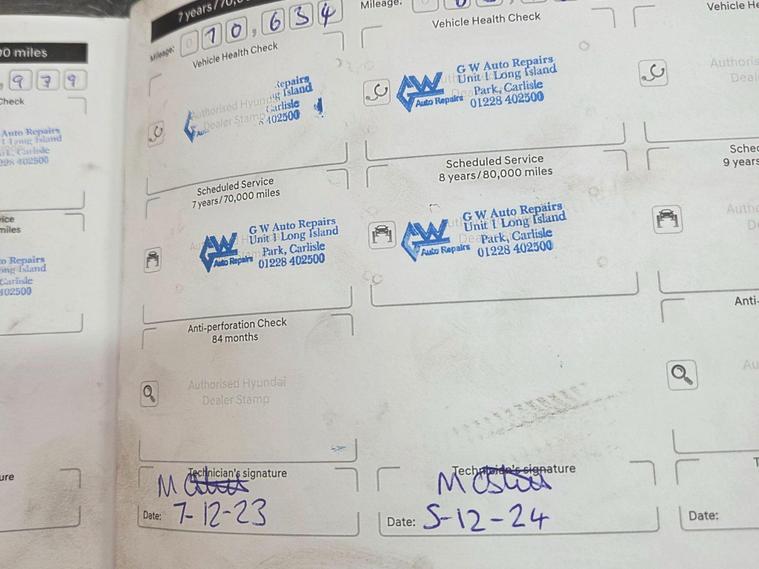 00 miles
979
Check
Auto Repairs
1 Long Island
Carlisle
402500
miles
Repairs
Island
Carlisle
402500
7 years/70,0
Mileage: 0 10,634
Vehicle Health Check
Authorised Hyundai
Dealer Stamp
Repairs
Island
Carlisle
402500
Scheduled Service
7 years/70,000 miles
GW
Auto Repairs
G W Auto Repairs
Unit 1 Long Island
Park, Carlisle
01228 402500
Anti-perforation Check
84 months
Authorised Hyundai
Dealer Stamp
Technician's signature
Date: 7-12-23
Mileage:
Vehicle Health Check
GW
Auto Repairs
G W Auto Repairs
Unit 1 Long Island
Park, Carlisle
01228 402500
Scheduled Service
8 years/80,000 miles
GW
Auto Repairs
G W Auto Repairs
Unit 1 Long Island
Park, Carlisle
01228 402500
Technician's signature
Date: 5-12-24
Vehicle He
Authoris
Deal
Sched
9 years
Autho
Anti-
Au
T
Date: